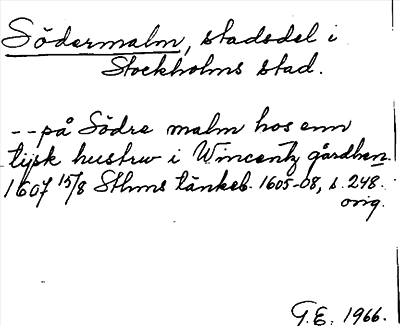 Södermalm, stadsdel i
Stockholms stad.
-- på Södre malm hos enn
tysk hustrw i Wincentz gårdhen.
1607 15/8 Sthms tänkeb. 1605-08, s. 248.
orig.
G.E. 1966.